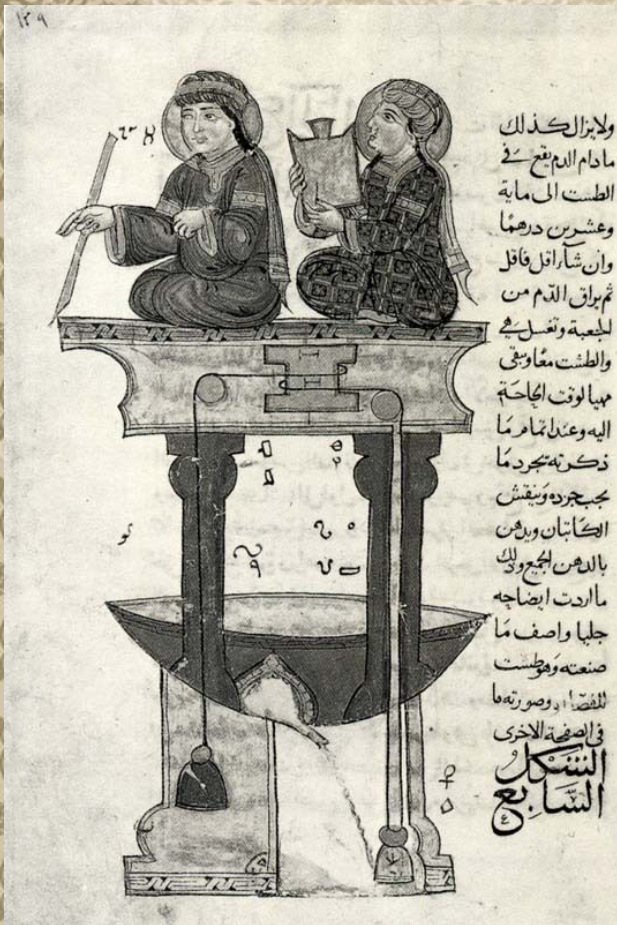 ١٢٩
ولا يزال كذلك
ما دام الدم يقع في
الطست الى ماية
وعشرين درهما
وان شآء اقل فاقل
ثم يراق الدم من
الجعبة وتغسل هي
والطشت معا ويبقى
مهيا لوقت الحاجة
اليه وعند اتمام ما
ذكرته يجرد ما
يجب جرده وينقش
الكاتبان ويدهن
بالدهن الجميع وذلك
ما اردت ايضاحه
جليا واصف ما
صنعته وهو طست
للفصاد وصورته ما
في الصفحة الاخرى
الشكل
السابع